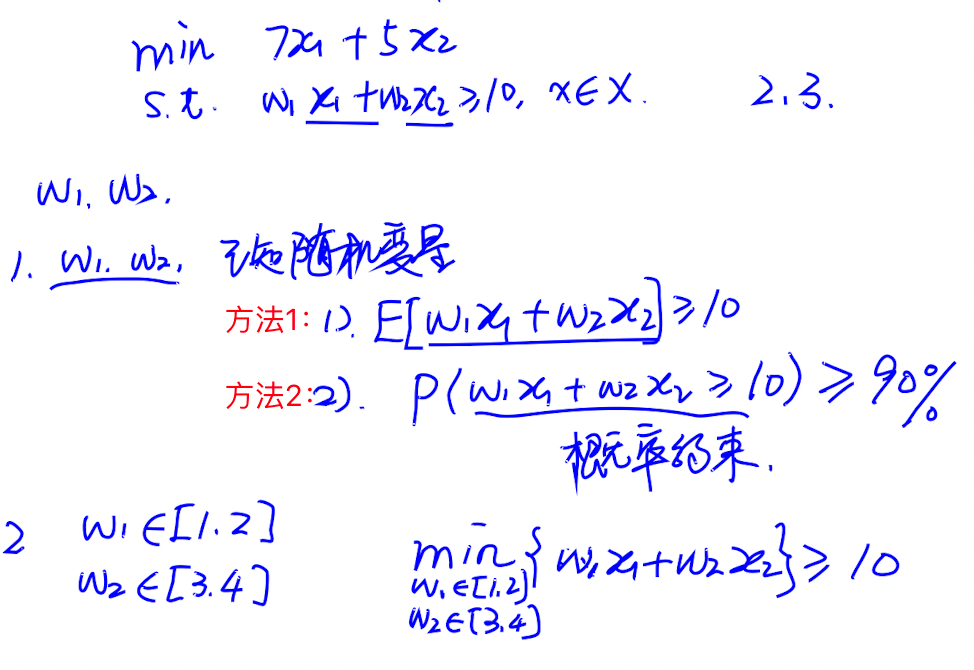 min 7x₁ + 5x₂
s.t. w₁x₁ + w₂x₂ ≥ 10, x ∈ X. 2.3.
w₁. w₂.
1. w₁. w₂. 已知随机变量
方法1: 1). E[w₁x₁ + w₂x₂] ≥ 10
方法2: 2). P(w₁x₁ + w₂x₂ ≥ 10) ≥ 90%
概率约束.
2 w₁ ∈ [1.2]
w₂ ∈ [3.4]
min { w₁x₁ + w₂x₂ } ≥ 10
w₁ ∈ [1.2]
w₂ ∈ [3.4]